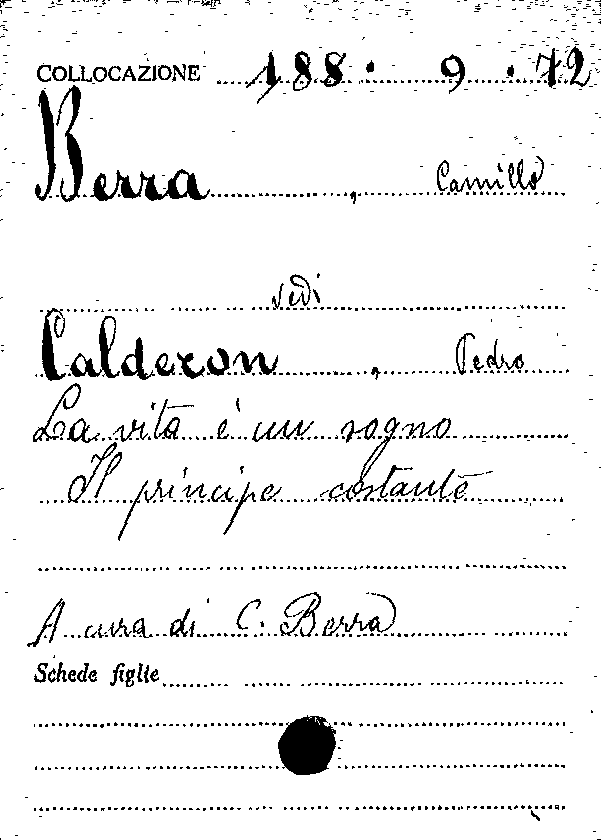 COLLOCAZIONE 188. 9. 72
Berra, Camillo
vedi
Calderon, Pedro
La vita é un sogno
Il principe costante
A cura di C. Berra
Schede figlie